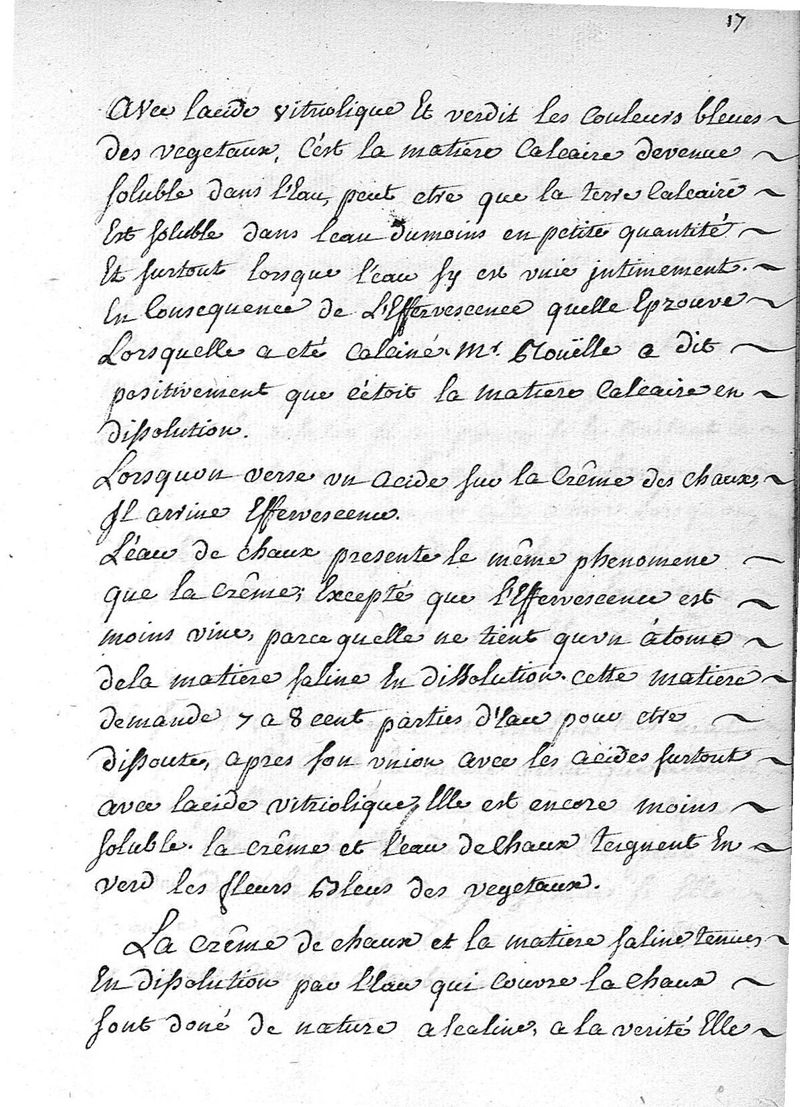 17
Avec lacide vitriolique Et verdit les Couleurs bleues ~
des vegetaux, C'est la matière Calcaire devenue ~
soluble dans l'Eau, peut etre que la terre Calcaire ~
Est soluble dans leau dumoins en petite quantité ~
Et surtout lorsque l'eau sy est vnie jntimement. ~
En Consequence de L'Effervescence quelle Eprouve ~
Lorsquelle a eté Calciné. Mr. Roüelle a dit ~
positivement que c'étoit la matiere Calcaire en ~
dissolution.
Lorsquon verse vn acide sur la Crême des chaux, ~
Jl arrive Effervescence.
L'éau de chaux presente le même phenomene ~
que la crême; Excepté que l'Effervescence est ~
moins vive, parce quelle ne tient qu'vn âtome ~
dela matiere saline En dissolution. cette matiere ~
demande 7 a 8 cent parties d'Eau pour etre ~
dissoute, apres son vnion avec les acides surtout ~
avec lacide vitriolique, Elle est encore moins ~
soluble. la crême et l'eau de Chaux teignent En ~
verd les fleurs Bleus des vegetaux.
La crême de chaux et la matiere saline tenues ~
En dissolution par l'Eau qui couvre la chaux ~
sont doné de nature alcaline, a la verité Elle ~